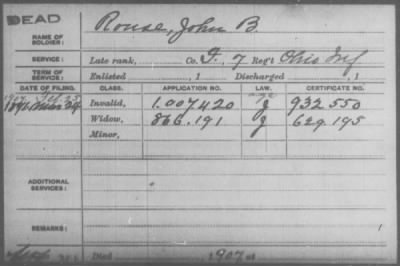 DEAD
NAME OF SOLDIER: Rouse, John B.
SERVICE: Late rank, Co. F, 7 Reg't Ohio Inf
TERM OF SERVICE: Enlisted , 1 Discharged , 1
DATE OF FILING. CLASS. APPLICATION NO. LAW. CERTIFICATE NO.
1907 Feb. 25 Invalid, 1.007.420 J 932.550
Widow, 866.191 J 629.195
Minor,
ADDITIONAL SERVICES:
REMARKS:
Died 1907 at